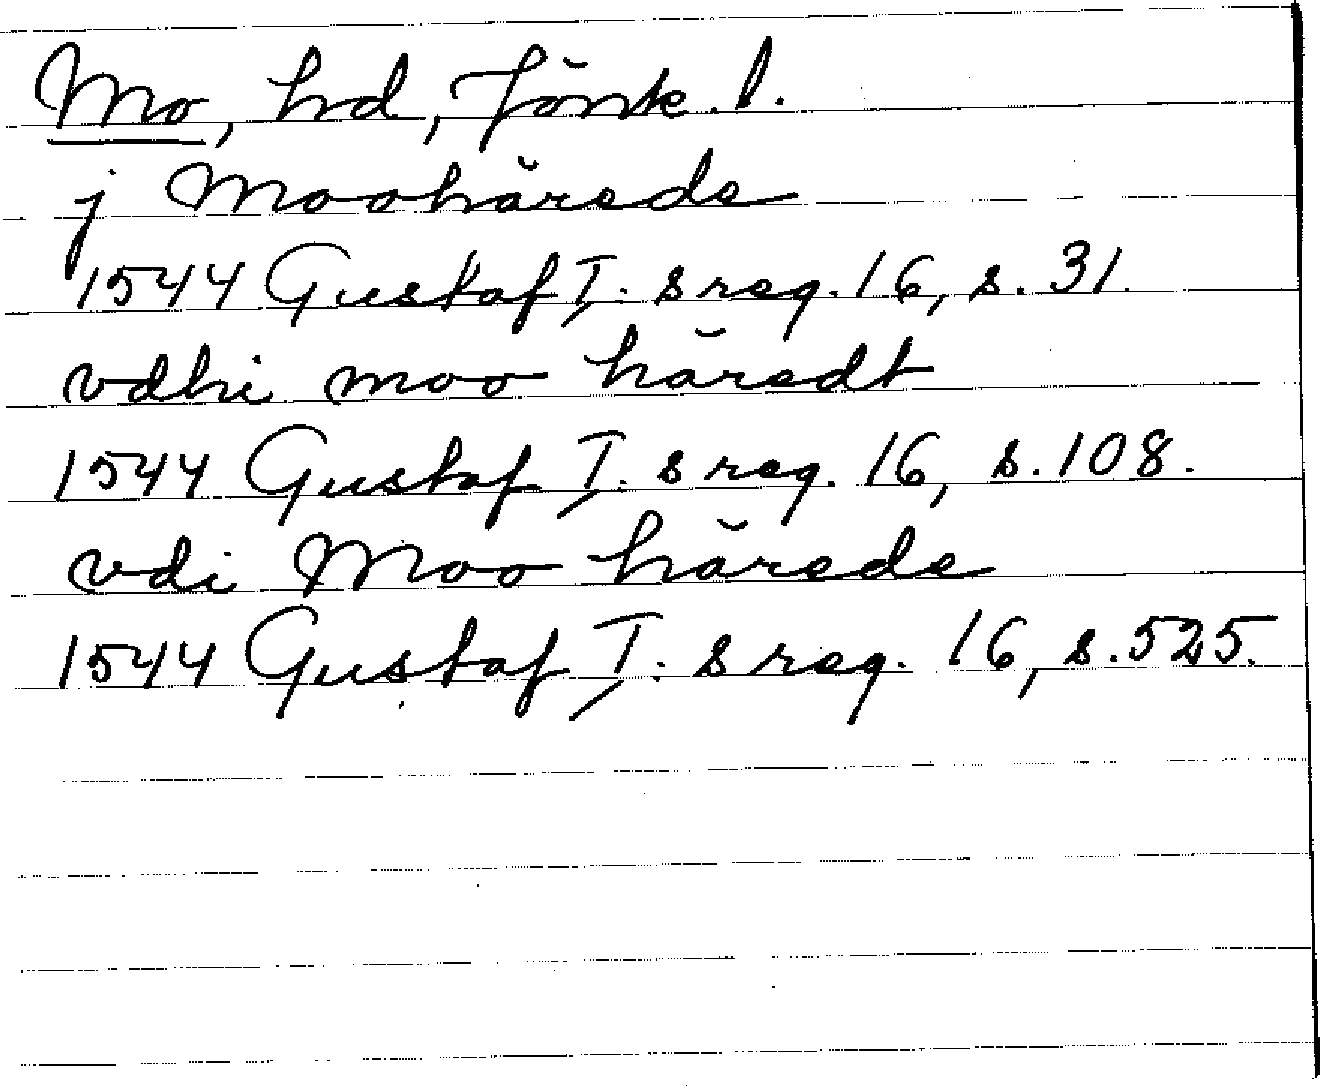 Mo, hd, Jönk. l.
j Moohärede
1544 Gustaf I:s reg. 16, s. 31.
vdhi moo häredt
1544 Gustaf I:s reg. 16, s. 108.
vdi Moo härede
1544 Gustaf I:s reg. 16, s. 525.